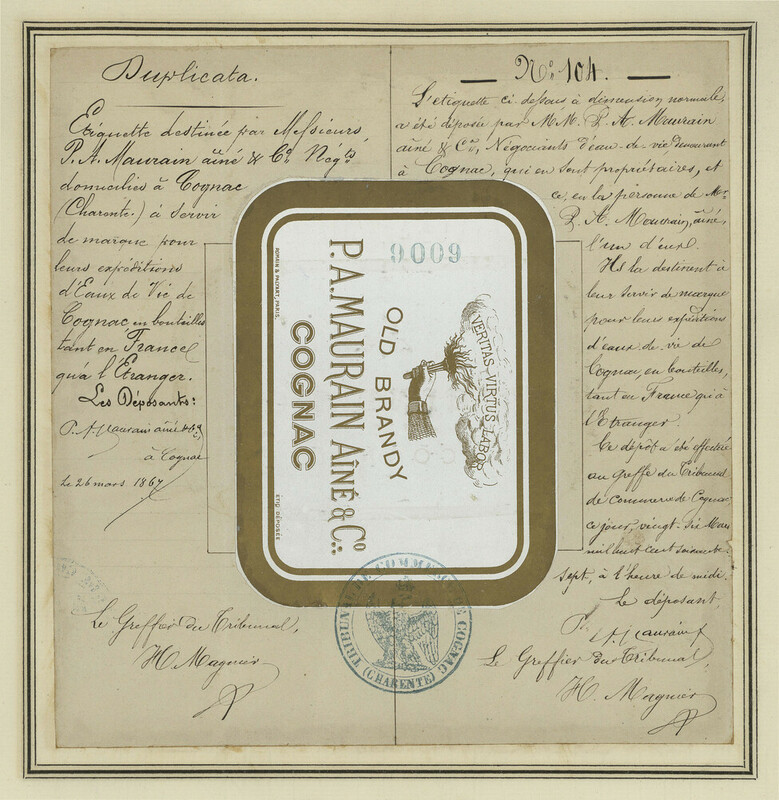 Duplicata.
Etiquette destinée par Messieurs
P. A. Maurain aîné & Co Négts
domiciliés à Cognac
(Charente.) à servir
de marque pour
leurs expéditions
d'Eaux de Vie de
Cognac en bouteilles
tant en France
qu'à l'Etranger.
Les Déposants:
P. A. Maurain aîné & Co
à Cognac
Le 26 mars 1867
Le Greffier du Tribunal,
H. Magnier
No 104.
L'etiquette ci-dessus à dimension normale,
a été déposée par MM. P. A. Maurain
aîné & Cie, Négociants d'eau-de-vie, demeurant
à Cognac, qui en sont propriétaires, et
ce, en la personne de Mr
P. A. Maurain, aîné,
l'un d'eux.
Ils la destinent à
leur servir de marque
pour leurs expéditions
d'eaux-de-vie de
Cognac, en bouteilles,
tant en France qu'à
l'Etranger.
Ce dépôt a été effectué
au greffe du Tribunal
de commerce de Cognac
ce jour, vingt-six Mars
mil huit cent soixante-
sept, à l'heure de midi.
Le déposant,
P. A. Maurain
Le Greffier du Tribunal,
H. Magnier
9009
VERITAS-VIRTUS LABOR
OLD BRANDY
P.A.MAURAIN AÎNÉ & Co.
COGNAC
ROMAIN & PALYART, PARIS.
ETIQ. DÉPOSÉE
TRIBUNAL DE COMMERCE DE COGNAC
(CHARENTE)